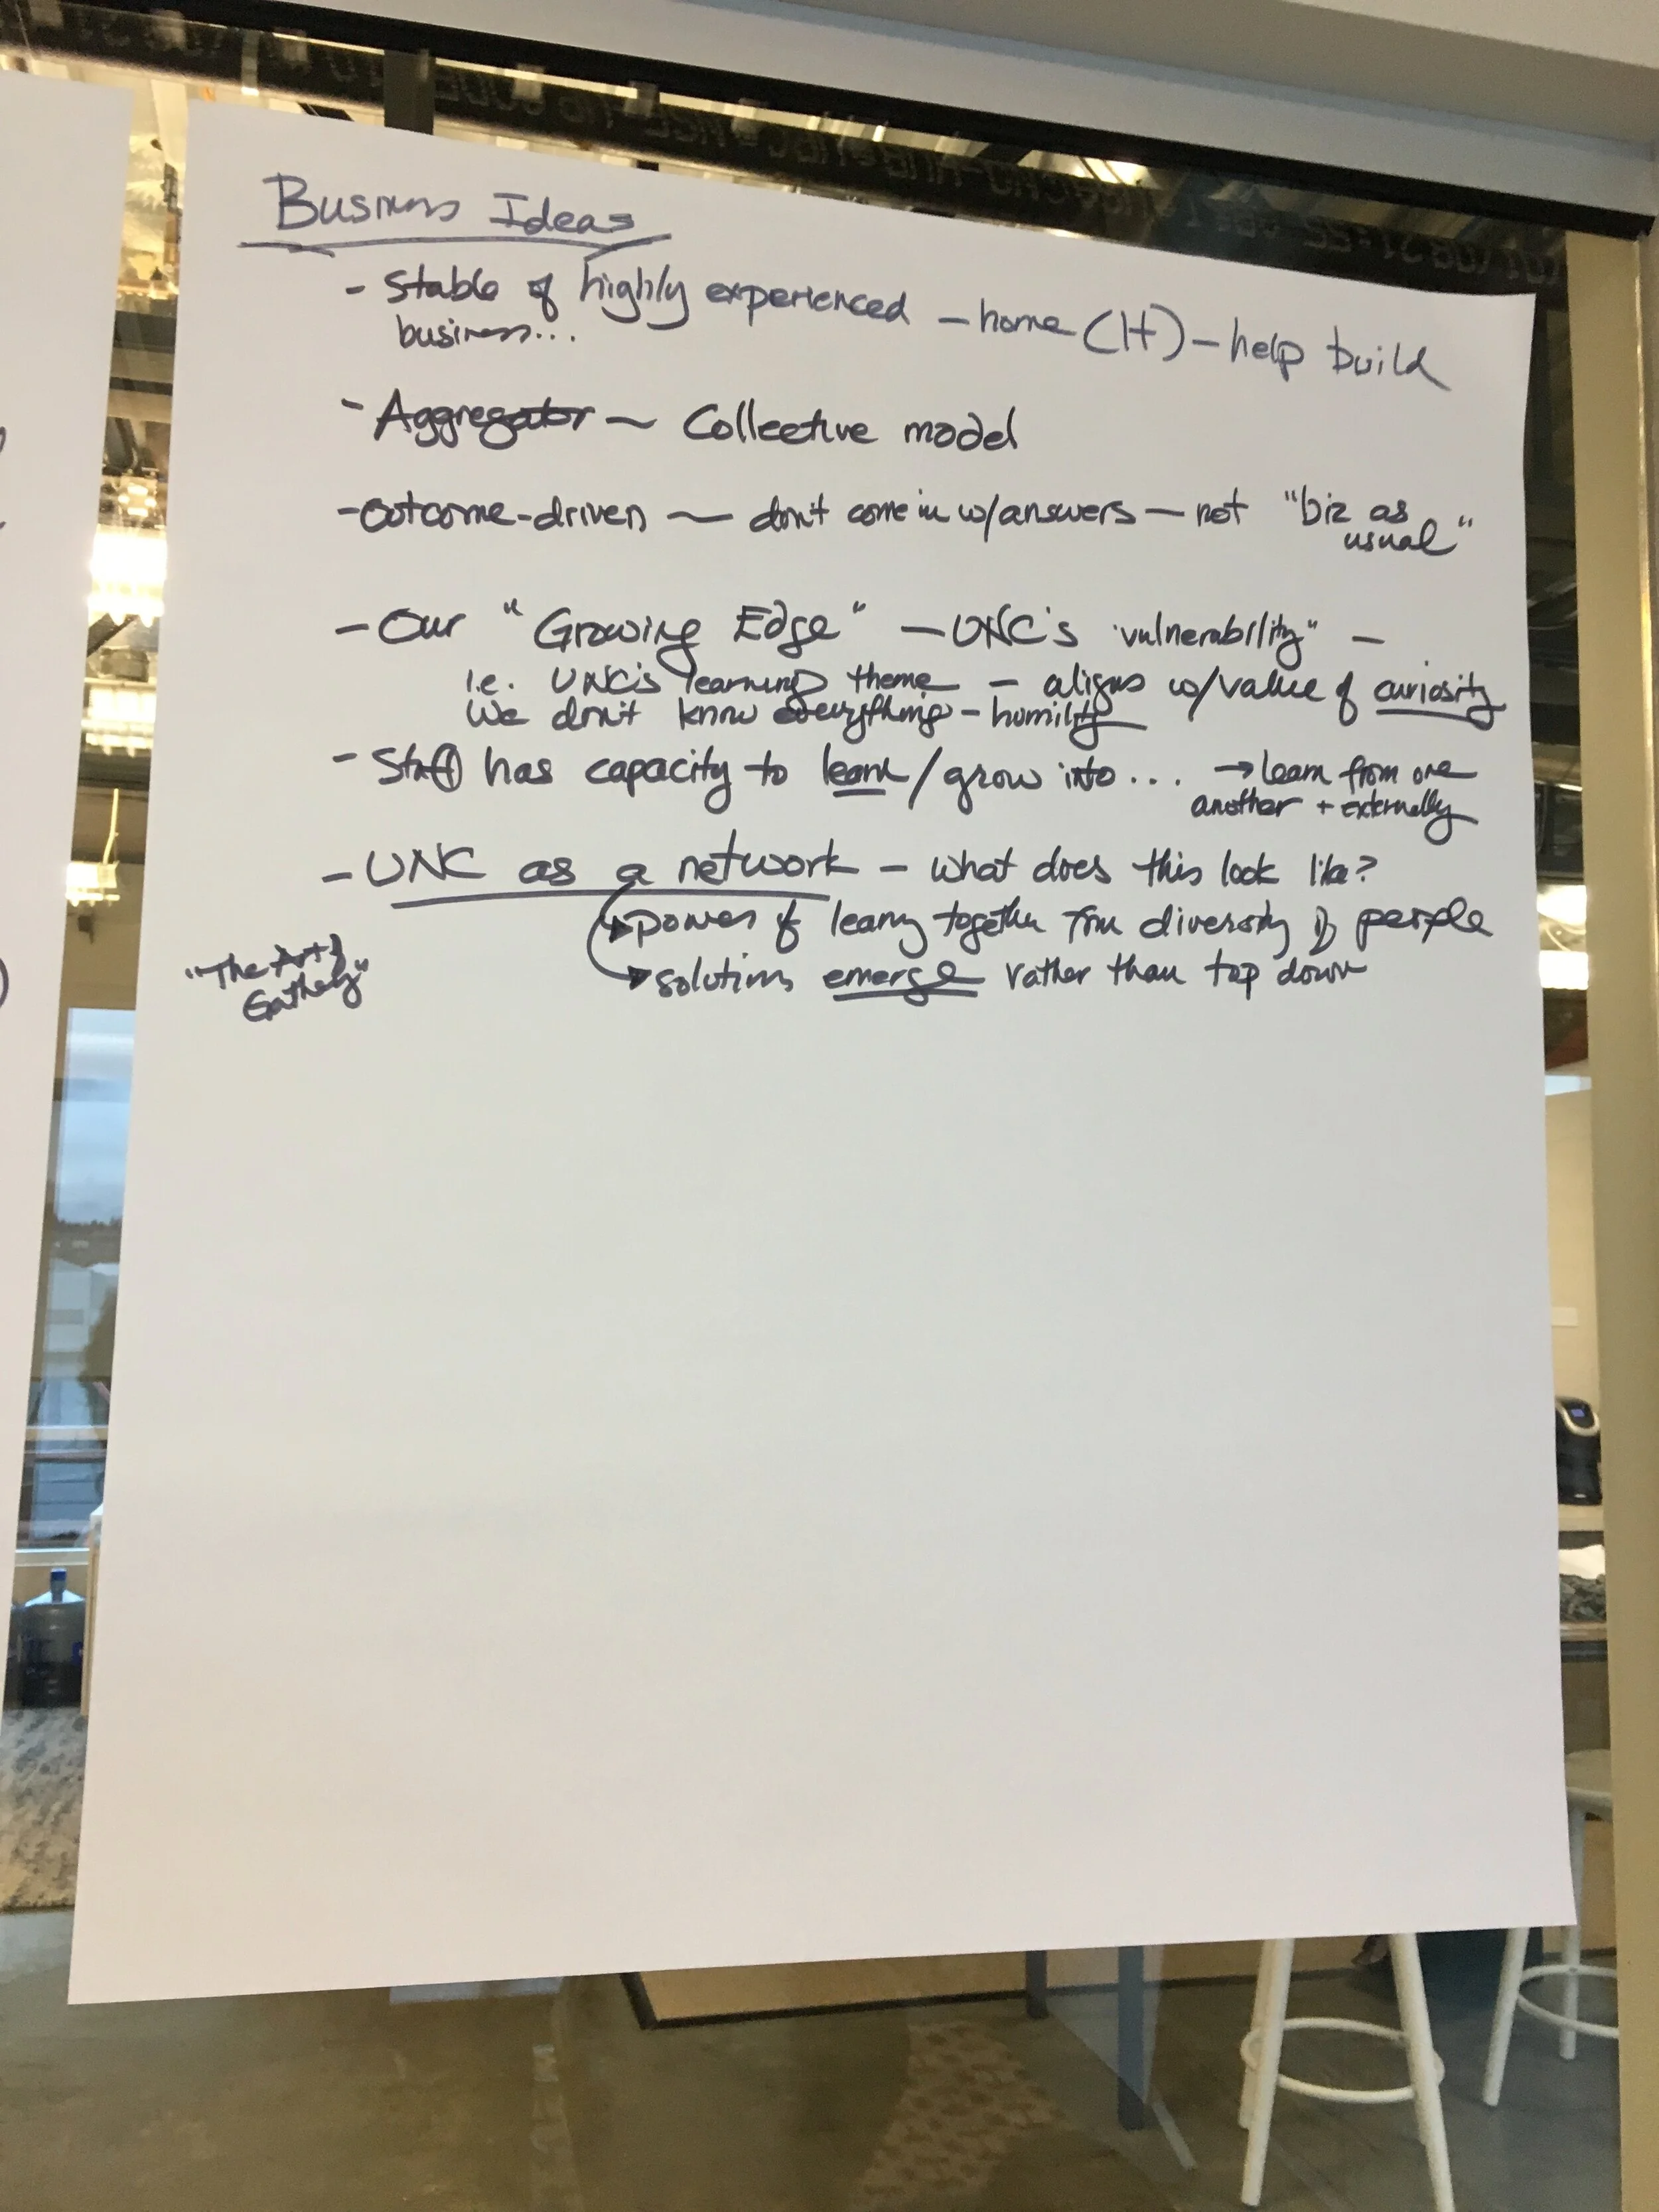 Business Ideas
- Stable of highly experienced - home (H) - help build
business...
- Aggregator ~ Collective model
- Outcome-driven — don't come in w/answers — not "biz as
usual"
- Our "Growing Edge" — UNC's "vulnerability" -
i.e. UNC's learning theme - aligns w/value of curiosity
We don't know everything - humility
- Staff has capacity to learn/grow into... → learn from one
another + externally
- UNC as a network - what does this look like?
power of learng together from diversity of people
solutions emerge rather than top down
"The Art of
Gatherg"